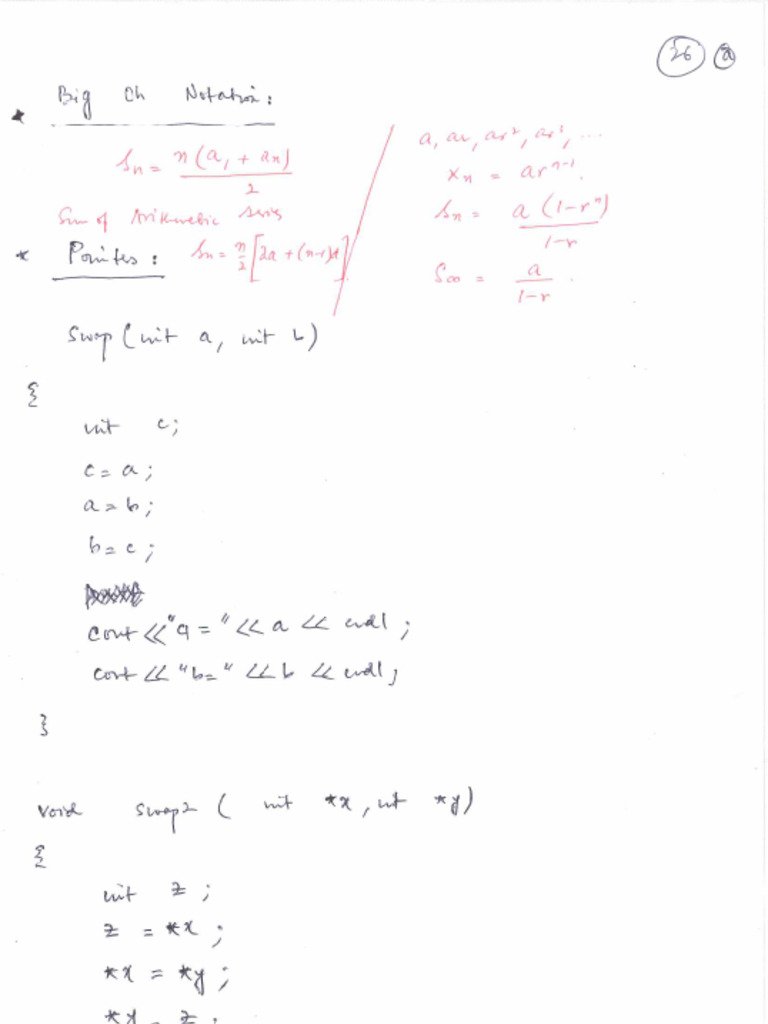 26 a
* Big Oh Notation:
Sn = n(a1 + an) / 2
Sum of Arithmetic Series
Sn = n/2 [2a + (n-1)d]
a, ar, ar², ar³, ...
xn = ar^(n-1).
Sn = a(1-r^n) / 1-r
S∞ = a / 1-r .
* Pointes :
Swap (int a, int b)
{
int c;
c = a;
a = b;
b = c;
cout << "a = " << a << endl ;
cout << "b= " << b << endl;
}
void swap2 ( int *x, int *y)
{
int z ;
z = *x ;
*x = *y ;